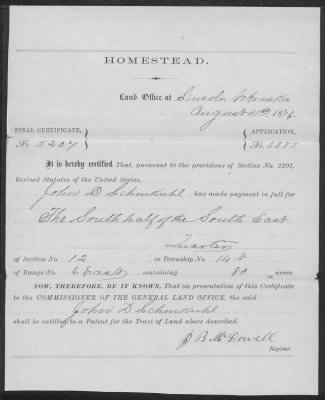 HOMESTEAD.
Land Office at Lincoln Nebraska
August 21st, 1876.
FINAL CERTIFICATE, APPLICATION,
No. 5207 No.
It is hereby certified That, pursuant to the provisions of Section No. 2291,
Revised Statutes of the United States,
John D Schmkuhl, has made payment in full for
The South half of the South East
Quarter
of Section No. 12 in Township No. 14
of Range No. 6 East, containing 80 acres.
NOW, THEREFORE, BE IT KNOWN, That on presentation of this Certificate
to the COMMISSIONER OF THE GENERAL LAND OFFICE, the said
John D Schmkuhl
shall be entitled to a Patent for the Tract of Land above described.
J B McDowell
Register.